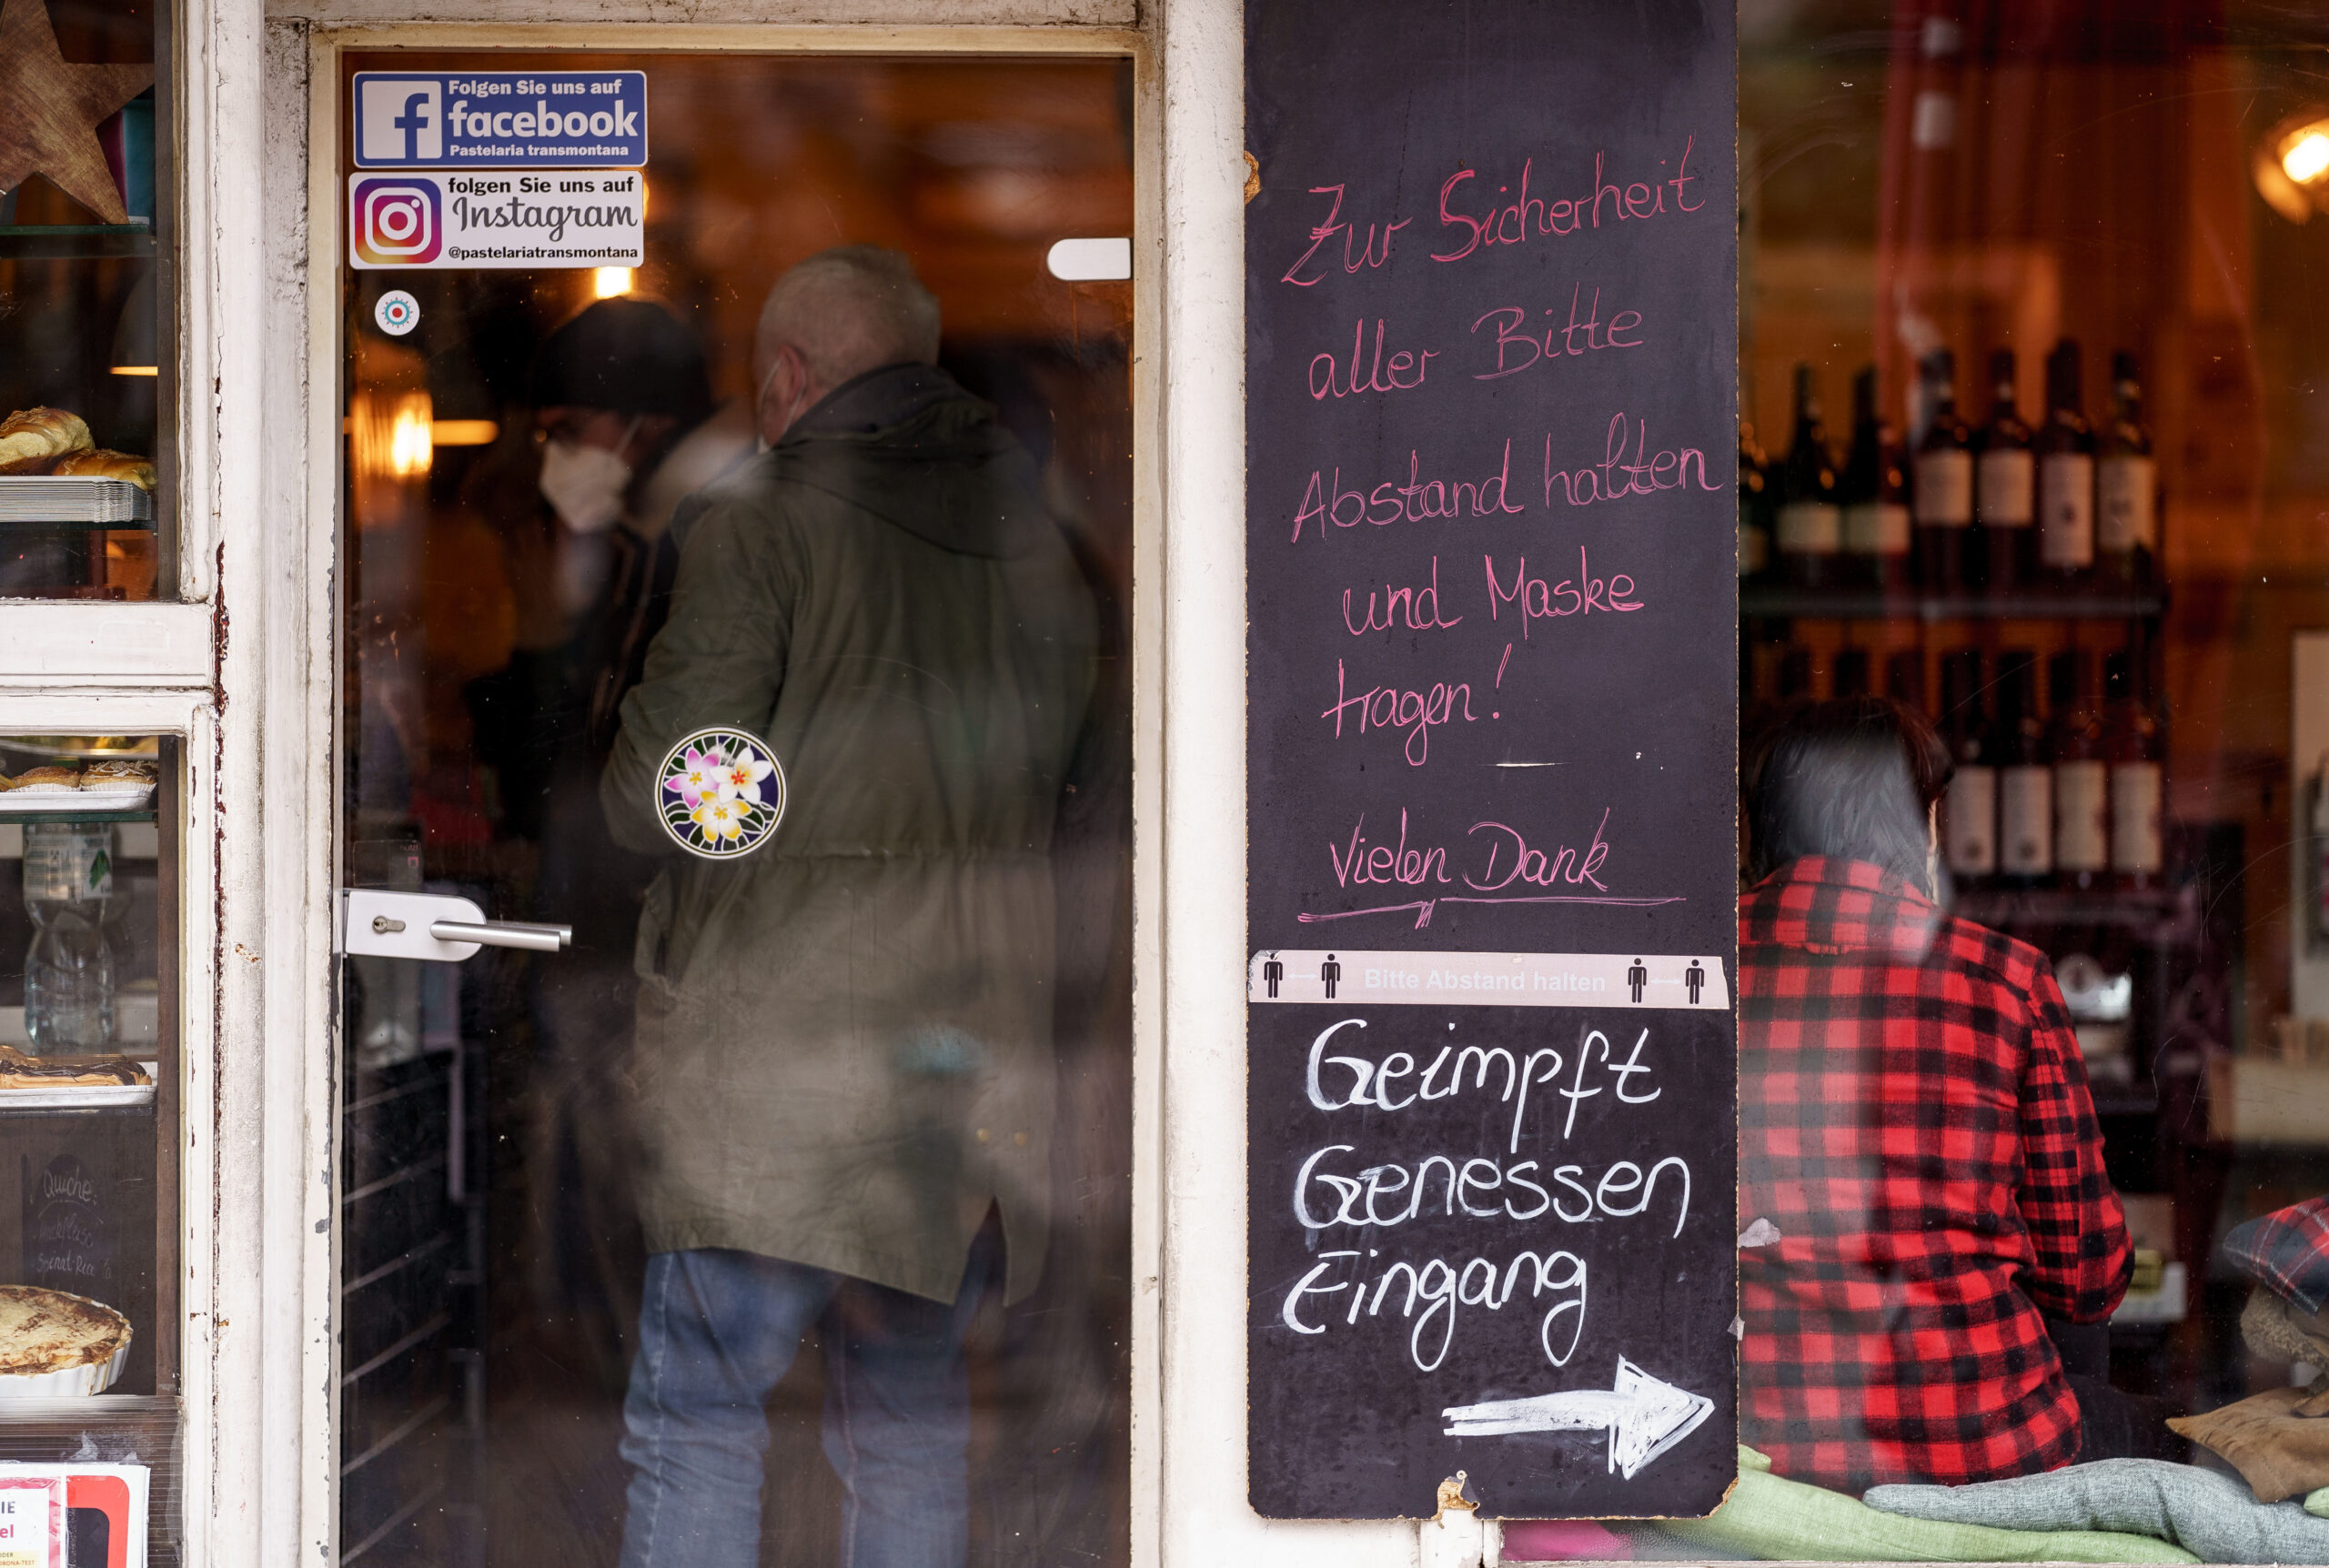 Folgen Sie uns auf
facebook
Pastelaria transmontana
folgen Sie uns auf
Instagram
@pastelariatransmontana
Zur Sicherheit
aller Bitte
Abstand halten
und Maske
tragen!
Vielen Dank
Bitte Abstand halten
Geimpft
Genessen
Eingang
Quiche
IE
el